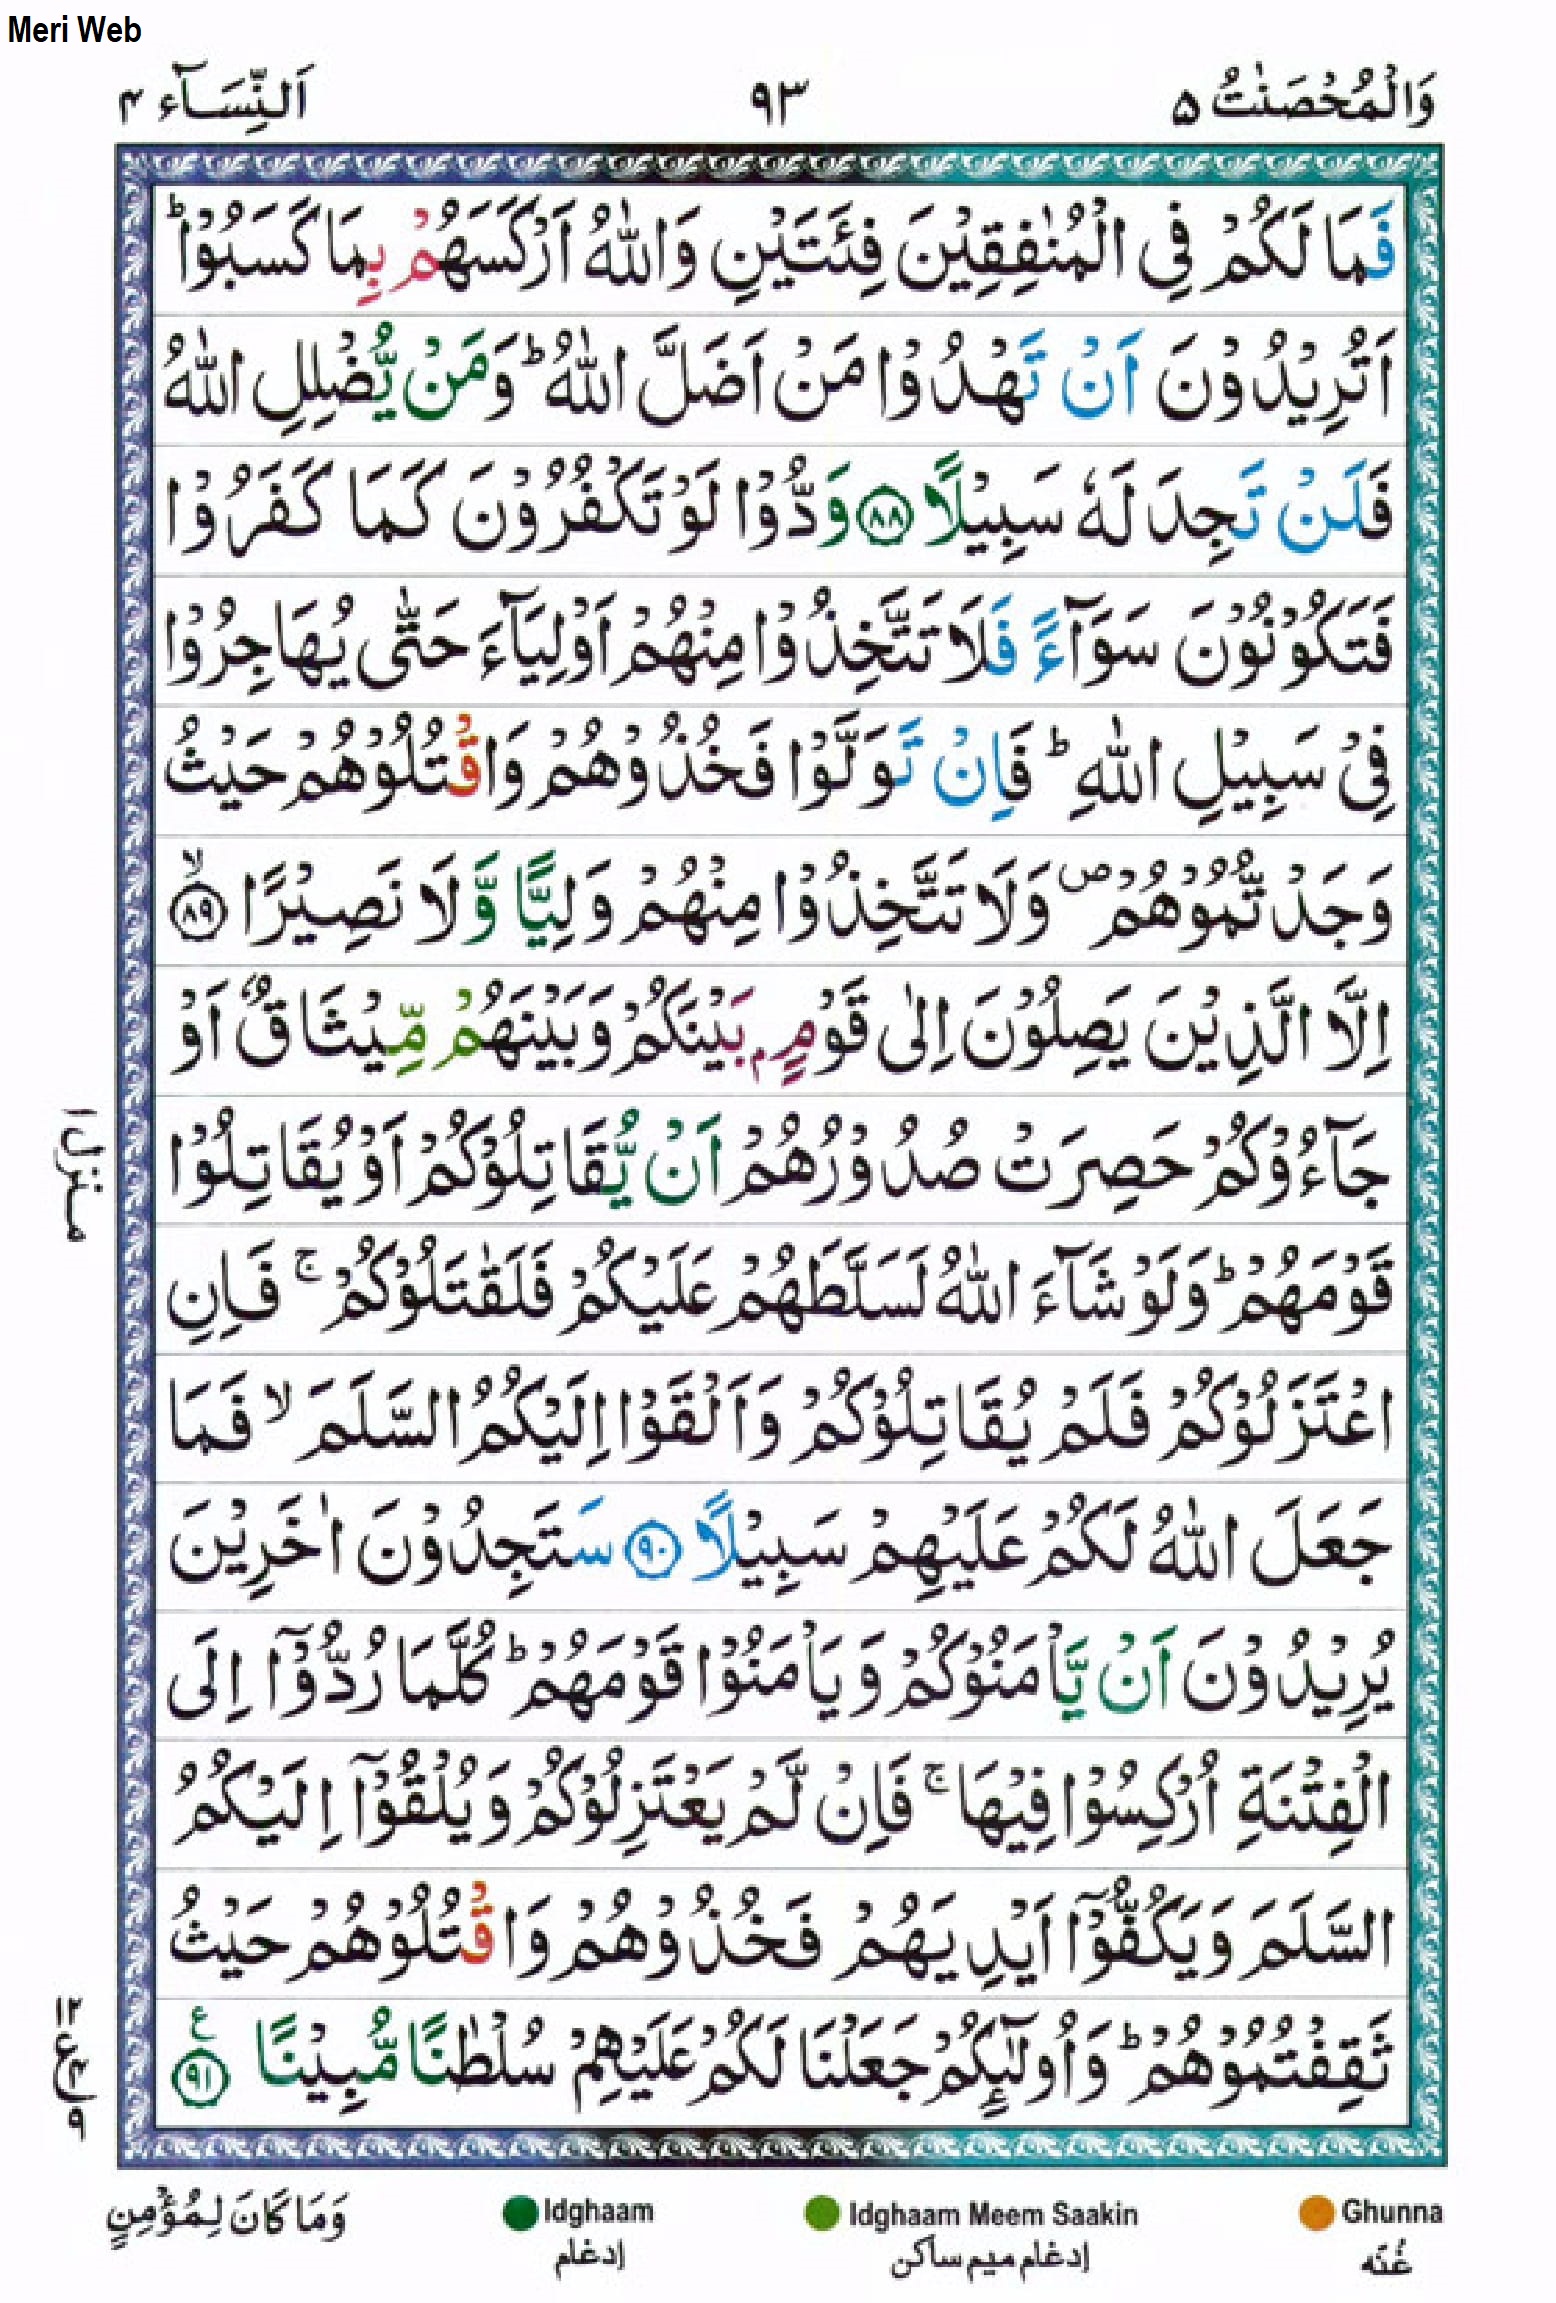 Meri Web
وَالْمُحْصَنٰتُ ۵
۹۳
اَلنِّسَآء ۴
فَمَا لَكُمْ فِى الْمُنٰفِقِيْنَ فِئَتَيْنِ وَاللّٰهُ اَرْكَسَهُمْ بِمَا كَسَبُوْا ؕ
اَتُرِيْدُوْنَ اَنْ تَهْدُوْا مَنْ اَضَلَّ اللّٰهُ ؕ وَمَنْ يُّضْلِلِ اللّٰهُ
فَلَنْ تَجِدَ لَهٗ سَبِيْلًا ﴿۸۸﴾ وَدُّوْا لَوْ تَكْفُرُوْنَ كَمَا كَفَرُوْا
فَتَكُوْنُوْنَ سَوَآءً فَلَا تَتَّخِذُوْا مِنْهُمْ اَوْلِيَآءَ حَتّٰى يُهَاجِرُوْا
فِىْ سَبِيْلِ اللّٰهِ ؕ فَاِنْ تَوَلَّوْا فَخُذُوْهُمْ وَاقْتُلُوْهُمْ حَيْثُ
وَجَدْتُّمُوْهُمْ ۪ وَلَا تَتَّخِذُوْا مِنْهُمْ وَلِيًّا وَّلَا نَصِيْرًا ۙ﴿۸۹﴾
اِلَّا الَّذِيْنَ يَصِلُوْنَ اِلٰى قَوْمٍۭ بَيْنَكُمْ وَبَيْنَهُمْ مِّيْثَاقٌ اَوْ
جَآءُوْكُمْ حَصِرَتْ صُدُوْرُهُمْ اَنْ يُّقَاتِلُوْكُمْ اَوْ يُقَاتِلُوْا
قَوْمَهُمْ ؕ وَلَوْ شَآءَ اللّٰهُ لَسَلَّطَهُمْ عَلَيْكُمْ فَلَقٰتَلُوْكُمْ ۚ فَاِنِ
اعْتَزَلُوْكُمْ فَلَمْ يُقَاتِلُوْكُمْ وَاَلْقَوْا اِلَيْكُمُ السَّلَمَ ۙ فَمَا
جَعَلَ اللّٰهُ لَكُمْ عَلَيْهِمْ سَبِيْلًا ﴿۹۰﴾ سَتَجِدُوْنَ اٰخَرِيْنَ
يُرِيْدُوْنَ اَنْ يَّاْمَنُوْكُمْ وَيَاْمَنُوْا قَوْمَهُمْ ؕ كُلَّمَا رُدُّوْۤا اِلَى
الْفِتْنَةِ اُرْكِسُوْا فِيْهَا ۚ فَاِنْ لَّمْ يَعْتَزِلُوْكُمْ وَيُلْقُوْۤا اِلَيْكُمُ
السَّلَمَ وَيَكُفُّوْۤا اَيْدِيَهُمْ فَخُذُوْهُمْ وَاقْتُلُوْهُمْ حَيْثُ
ثَقِفْتُمُوْهُمْ ؕ وَاُولٰٓئِكُمْ جَعَلْنَا لَكُمْ عَلَيْهِمْ سُلْطٰنًا مُّبِيْنًا ﴿۹۱﴾ ع
منزل ۱
۱۲
ع
۹
وَمَا كَانَ لِمُؤْمِنٍ
Idghaam
إدغام
Idghaam Meem Saakin
إدغام ميم ساكن
Ghunna
غُنّه